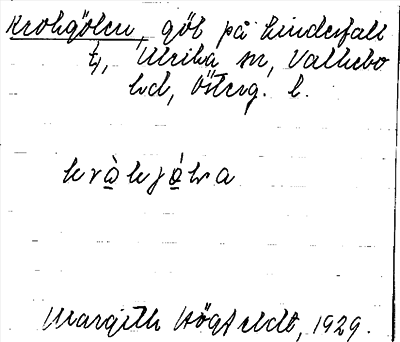 Krokgölen, göl på Linderfall
tj, Ulrika sn, Valkebo
hd, Österg. l.
Margith Högfeldt, 1929.